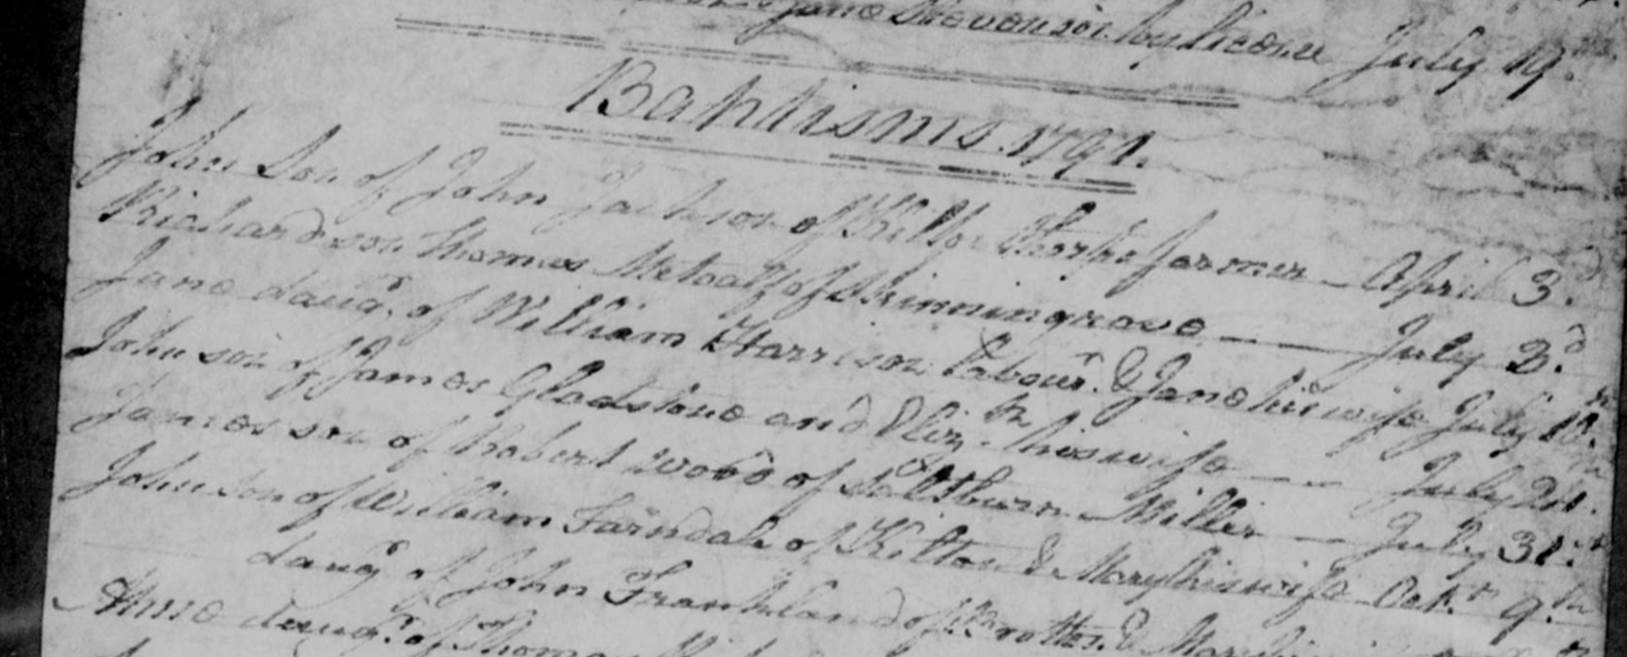 Jane Stevenson by licence July 19.
Baptisms. 1791.
John Son of John Jackson of Kilton Thorpe farmer April 3.d
Richard son Thomas Metcalf of Skinningrave July 3.d
Jane daug.r of William Harrison labour.r & Jane his wife July 10.th
John son of James Gladstone and Eliz.th his wife July 24.th
James son of Robert Wood of Saltburn Miller July 31.st
John Son of William Farndale of Kilton & Mary his wife Oct.r 9.th
daug.r of John Frankland of & Mary
Anne daug.r of Thomas